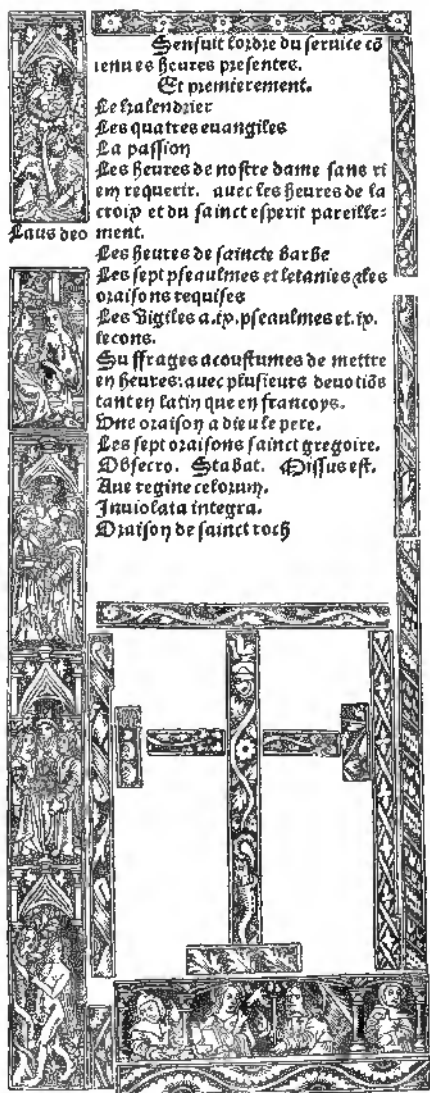 Sensuit lordre du seruice cõ
tenu es heures presentes.
Et premierement.
Le kalendrier
Les quatres euangiles
La passion
Les heures de nostre dame sans ri
en requerir. auec les heures de la
croix et du sainct esperit pareille-
Laus deo
ment.
Les heures de saincte barbe
Les sept pseaulmes et letanies &les
oraisons requises
Les vigiles a.ix.pseaulmes et.ix.
lecons.
Suffrages acoustumes de mettre
en heures.auec plusieurs deuotiõs
tant en latin que en francoys.
Vne oraison a dieu le pere.
Les sept oraisons sainct gregoire.
Obsecro. Stabat. Missus est.
Aue regine celorum.
Inuiolata integra.
Oraison de sainct roch